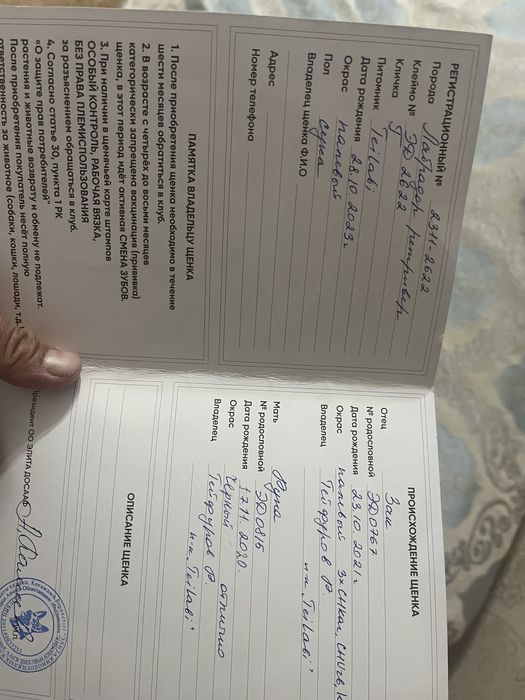 РЕГИСТРАЦИОННЫЙ № 2311-2622
Порода Лабрадор ретривер
Клеймо № ЭД 2622
Кличка
Питомник Teilabi
Дата рождения 28.10.2023г
Окрас палевый
Пол сука
Владелец щенка Ф.И.О
Адрес
Номер телефона
ПАМЯТКА ВЛАДЕЛЬЦУ ЩЕНКА
1. После приобретения щенка необходимо в течение
шести месяцев обратиться в клуб.
2. В возрасте с четырёх до восьми месяцев
категорически запрещена вакцинация (прививка)
щенка, в этот период идёт активная СМЕНА ЗУБОВ.
3. При наличии в щенячьей карте штампов
ОСОБЫЙ КОНТРОЛЬ, РАБОЧАЯ ВЯЗКА,
БЕЗ ПРАВА ПЛЕМИСПОЛЬЗОВАНИЯ
за разъяснением обращаться в клуб.
4. Согласно статье 30, пункта 1 РК
«О защите прав потребителей"
растения и животные возврату и обмену не подлежат.
После приобретения покупатель несёт полную
ответственность за животное (собаки, кошки, лошади, т.д.
ПРОИСХОЖДЕНИЕ ЩЕНКА
Отец Зак
№ родословной ЭД0767
Дата рождения 23.10.2021г
Окрас палевый 3хCHKaz,
Владелец Тейфуров Р.
п-к "Teilabi"
Мать
№ родословной ЭД0815
Дата рождения 17.11.2020.
Окрас Чёрный отлично
Владелец Тейфуров Р
п-к "Teilabi"
ОПИСАНИЕ ЩЕНКА
Президент ОО ЭЛИТА ДОСААФ